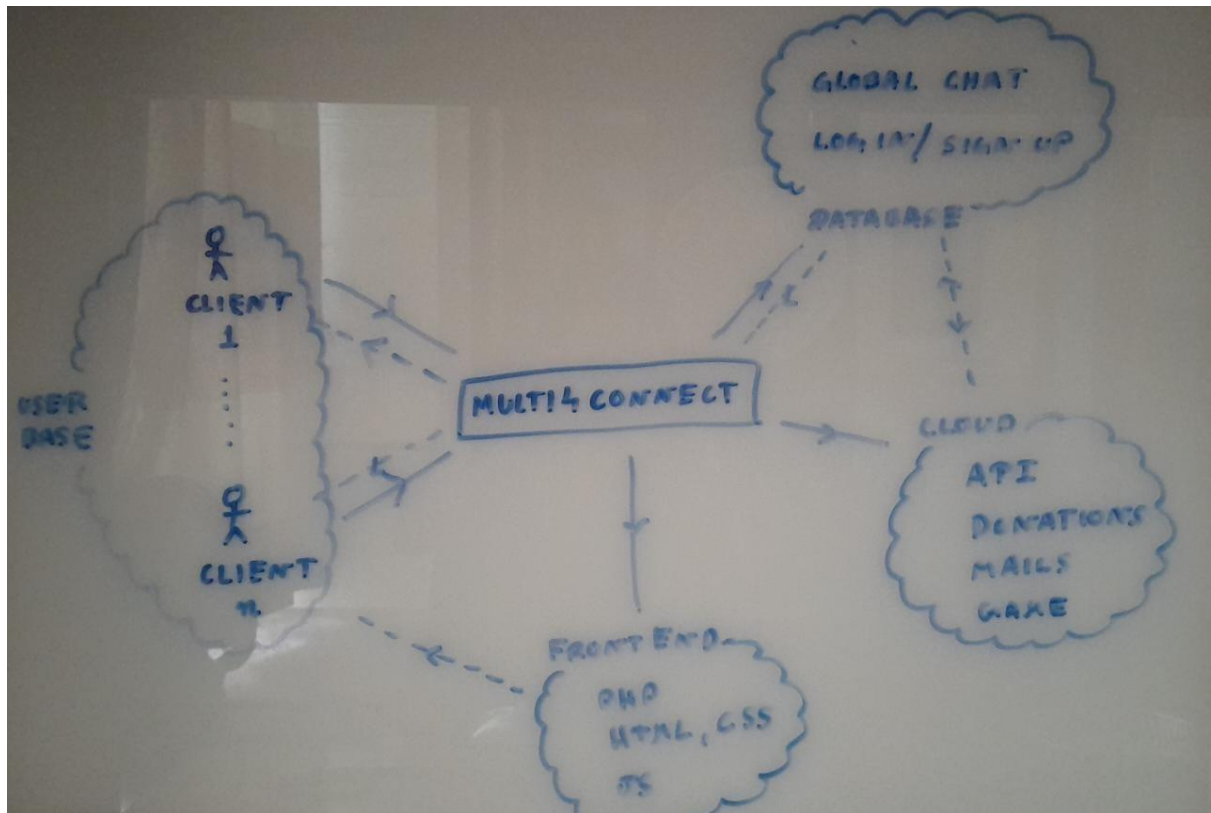 GLOBAL CHAT
LOG IN/ SIGN UP
DATABASE
CLIENT
1
USER
BASE
CLIENT
n
MULTI4 CONNECT
CLOUD
API
DONATIONS
MAILS
GAME
FRONT END
PHP
HTML, CSS
JS